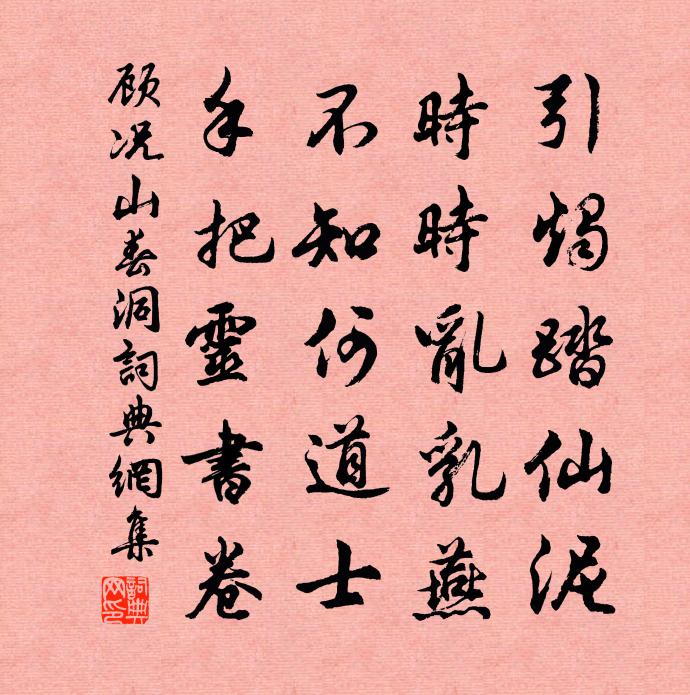 引燭踏仙泥
時時亂乳燕
不知何道士
手把靈書卷
顧况山春洞詞典網集
詞典網印